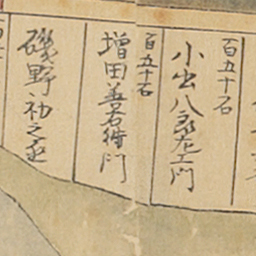 百五十石
小出八郎左エ門
百五十石
増田善右衛門
磯野初之丞